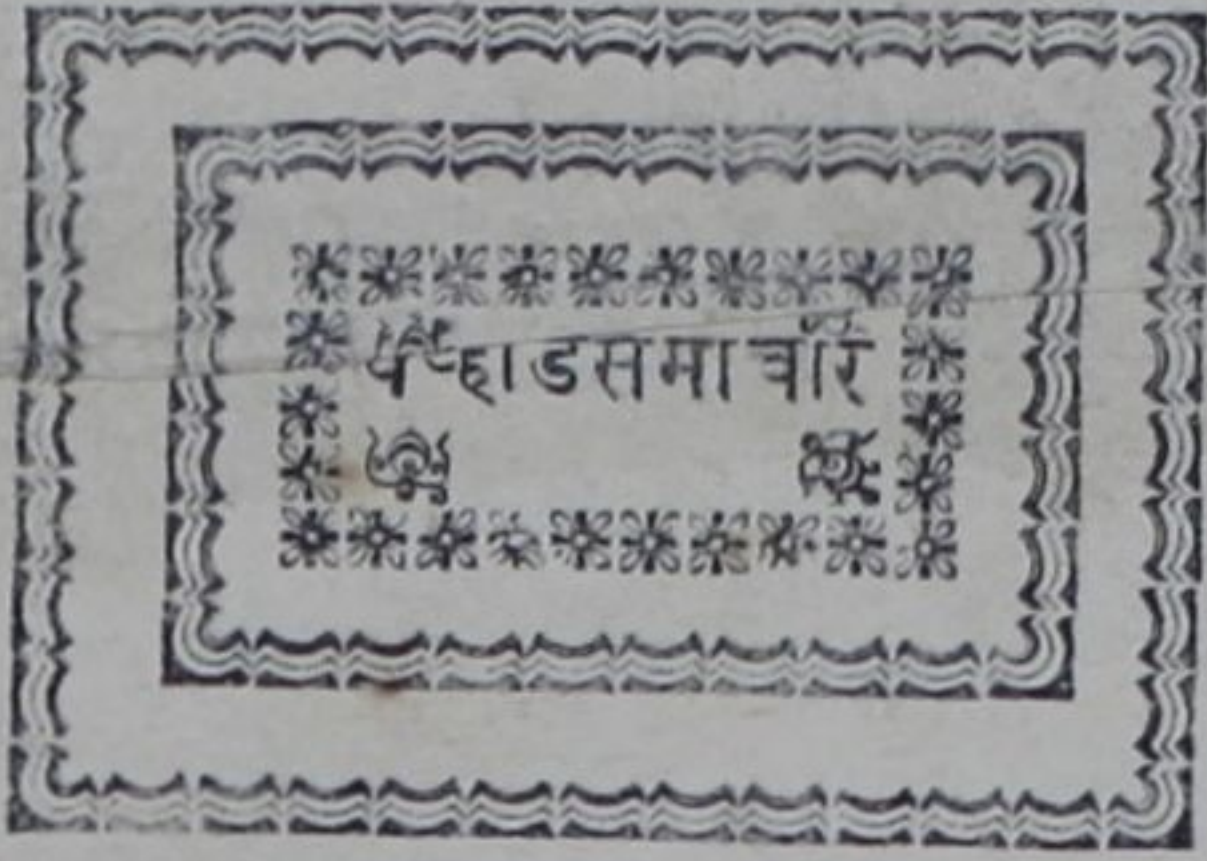 पहाडसमाचार